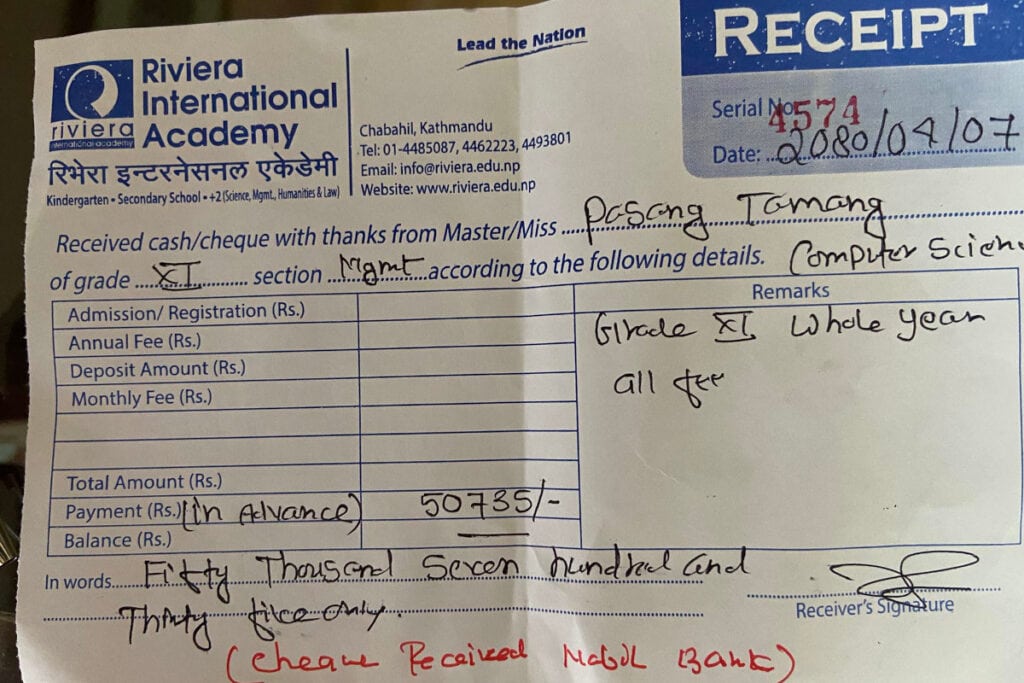 Lead the Nation
RECEIPT
riviera
international academy
Riviera
International
Academy
रिभेरा इन्टरनेसनल एकेडेमी
Kindergarten • Secondary School • +2 (Science, Mgmt., Humanities & Law)
Chabahil, Kathmandu
Tel: 01-4485087, 4462223, 4493801
Email: info@riviera.edu.np
Website: www.riviera.edu.np
Serial No. 4574
Date: 2080/04/07
Received cash/cheque with thanks from Master/Miss Pasang Tamang
of grade XI section Mgmt according to the following details. Computer Scien
Remarks
Admission/ Registration (Rs.)
Annual Fee (Rs.)
Deposit Amount (Rs.)
Monthly Fee (Rs.)
Grade XI Whole year
all fee
Total Amount (Rs.)
Payment (Rs.) (in Advance) 50735/-
Balance (Rs.)
In words Fifty Thousand Seven hundred and
Thirty five only.
Receiver's Signature
(Cheque Received Nabil Bank)